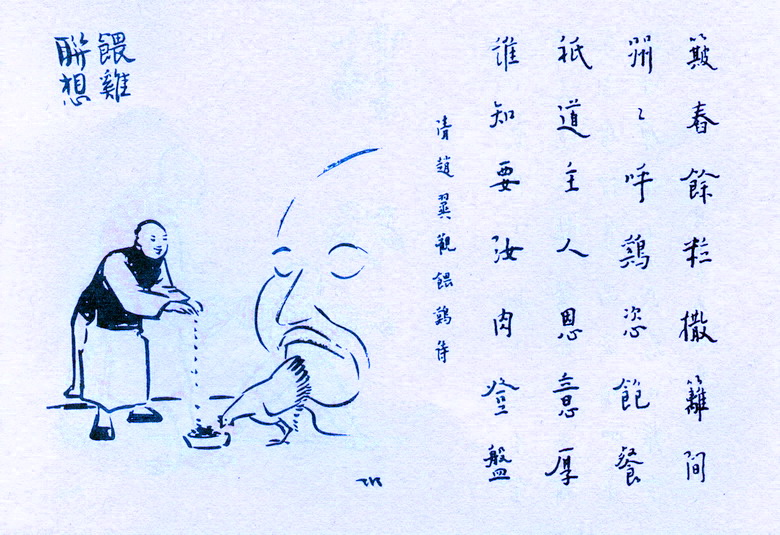 簸舂餘粒撒籬間
喌〻呼鷄恣飽餐
祇道主人恩意厚
誰知要汝肉登盤
清趙翼觀餵鷄詩
餵雞
聯想
TK